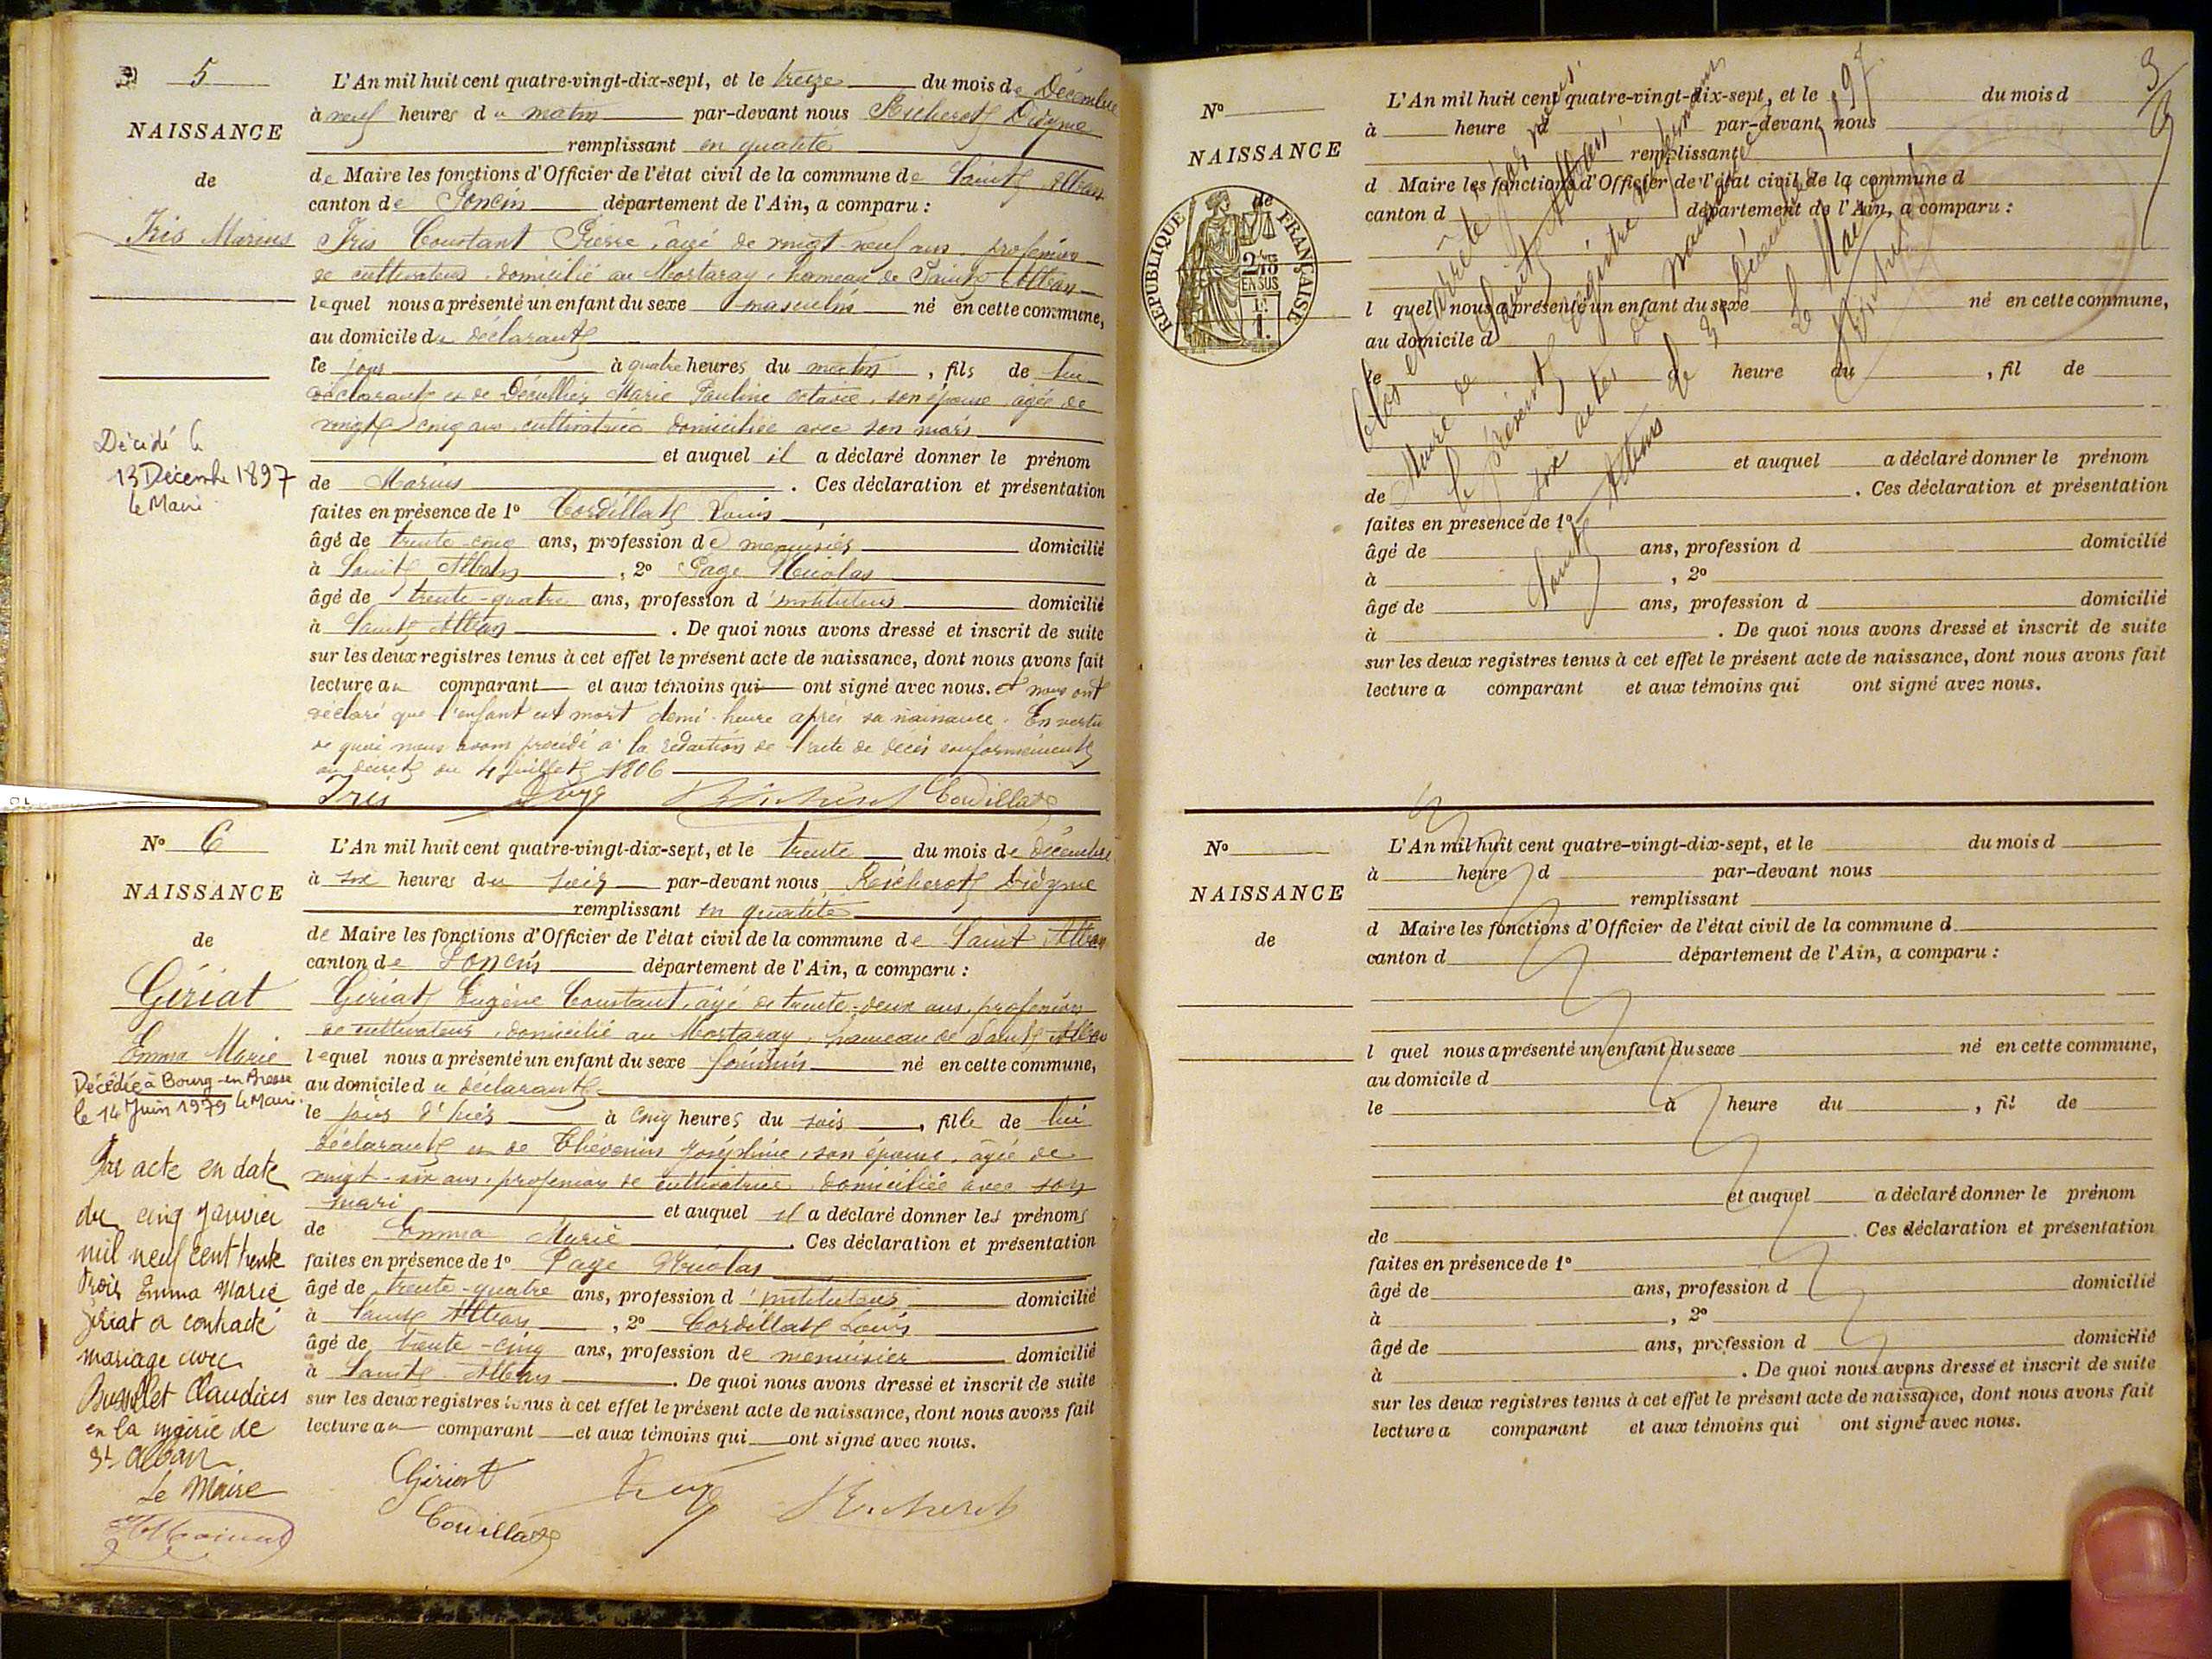 5
NAISSANCE
de
Iris Marius
Décédé le
13 Décembre 1897
le Maire
L'An mil huit cent quatre-vingt-dix-sept, et le treize du mois de Décembre
à neuf heures du matin par-devant nous Richerot Didyme
remplissant en qualité
de Maire les fonctions d'Officier de l'état civil de la commune de Saint Alban
canton de Poncin département de l'Ain, a comparu :
Iris Constant Pierre, âgé de vingt-neuf ans, profession
de cultivateur, domicilié au Mortaray, hameau de Saint Alban
lequel nous a présenté un enfant du sexe masculin né en cette commune,
au domicile du déclarant
le jour à quatre heures du matin, fils de lui
déclarant et de Marie Pauline Octavie, son épouse, âgée de
vingt cinq ans, cultivatrice domiciliée avec son mari
et auquel il a déclaré donner le prénom
de Marius. Ces déclaration et présentation
faites en présence de 1º Cordillat Louis
âgé de trente-cinq ans, profession de menuisier domicilié
à Saint Alban, 2º Page Nicolas
âgé de trente-quatre ans, profession d'instituteur domicilié
à Saint Alban. De quoi nous avons dressé et inscrit de suite
sur les deux registres tenus à cet effet le présent acte de naissance, dont nous avons fait
lecture au comparant et aux témoins qui ont signé avec nous. et nous ont
déclaré que l'enfant est mort demi-heure après sa naissance. En vertu
de quoi nous avons procédé à la rédaction de l'acte de décès conformément
au décret du 4 juillet 1806
Iris Page Richerot Cordillat
Nº 6
NAISSANCE
de
Gériat
Emma Marie
Décédée à Bourg-en-Bresse
le 14 Juin 1979 le Maire.
Par acte en date
du cinq Janvier
mil neuf cent trente
trois Emma Marie
Gériat a contracté
mariage avec
Claudius
en la mairie de
St Alban
Le Maire
L'An mil huit cent quatre-vingt-dix-sept, et le trente du mois de décembre
à six heures du soir par-devant nous Richerot Didyme
remplissant en qualité
de Maire les fonctions d'Officier de l'état civil de la commune de Saint Alban
canton de Poncin département de l'Ain, a comparu :
Gériat Eugène Constant, âgé de trente-deux ans, profession
de cultivateur, domicilié au Mortaray, hameau de Saint Alban
lequel nous a présenté un enfant du sexe féminin né en cette commune,
au domicile du déclarant
le jour d'hier à cinq heures du soir, fille de lui
déclarant et de Thévenin Joséphine, son épouse, âgée de
vingt-six ans, profession de cultivatrice, domiciliée avec son
mari et auquel il a déclaré donner les prénoms
de Emma Marie. Ces déclaration et présentation
faites en présence de 1º Page Nicolas
âgé de trente-quatre ans, profession d'instituteur domicilié
à Saint Alban, 2º Cordillat Louis
âgé de trente-cinq ans, profession de menuisier domicilié
à Saint Alban. De quoi nous avons dressé et inscrit de suite
sur les deux registres tenus à cet effet le présent acte de naissance, dont nous avons fait
lecture au comparant et aux témoins qui ont signé avec nous.
Gériat Page Richerot
Cordillat
3
Nº
NAISSANCE
de
RÉPUBLIQUE FRANÇAISE
2/10
EN SUS
L'An mil huit cent quatre-vingt-dix-sept, et le du mois d
à heure d par-devant nous
remplissant
d Maire les fonctions d'Officier de l'état civil de la commune d
canton d département de l'Ain, a comparu :
l quel nous a présenté un enfant du sexe né en cette commune,
au domicile d
le à heure du , fil de
et auquel a déclaré donner le prénom
de . Ces déclaration et présentation
faites en présence de 1º
âgé de ans, profession d domicilié
à , 2º
âgé de ans, profession d domicilié
à . De quoi nous avons dressé et inscrit de suite
sur les deux registres tenus à cet effet le présent acte de naissance, dont nous avons fait
lecture a comparant et aux témoins qui ont signé avec nous.
Clos et arrêté par nous,
Maire de Saint Alban
le présent registre
six actes de naissance
Saint Alban le 31 Décembre 1897
Le Maire
Nº
NAISSANCE
de
L'An mil huit cent quatre-vingt-dix-sept, et le du mois d
à heure d par-devant nous
remplissant
d Maire les fonctions d'Officier de l'état civil de la commune d
canton d département de l'Ain, a comparu :
l quel nous a présenté un enfant du sexe né en cette commune,
au domicile d
le à heure du , fil de
et auquel a déclaré donner le prénom
de . Ces déclaration et présentation
faites en présence de 1º
âgé de ans, profession d domicilié
à , 2º
âgé de ans, profession d domicilié
à . De quoi nous avons dressé et inscrit de suite
sur les deux registres tenus à cet effet le présent acte de naissance, dont nous avons fait
lecture a comparant et aux témoins qui ont signé avec nous.